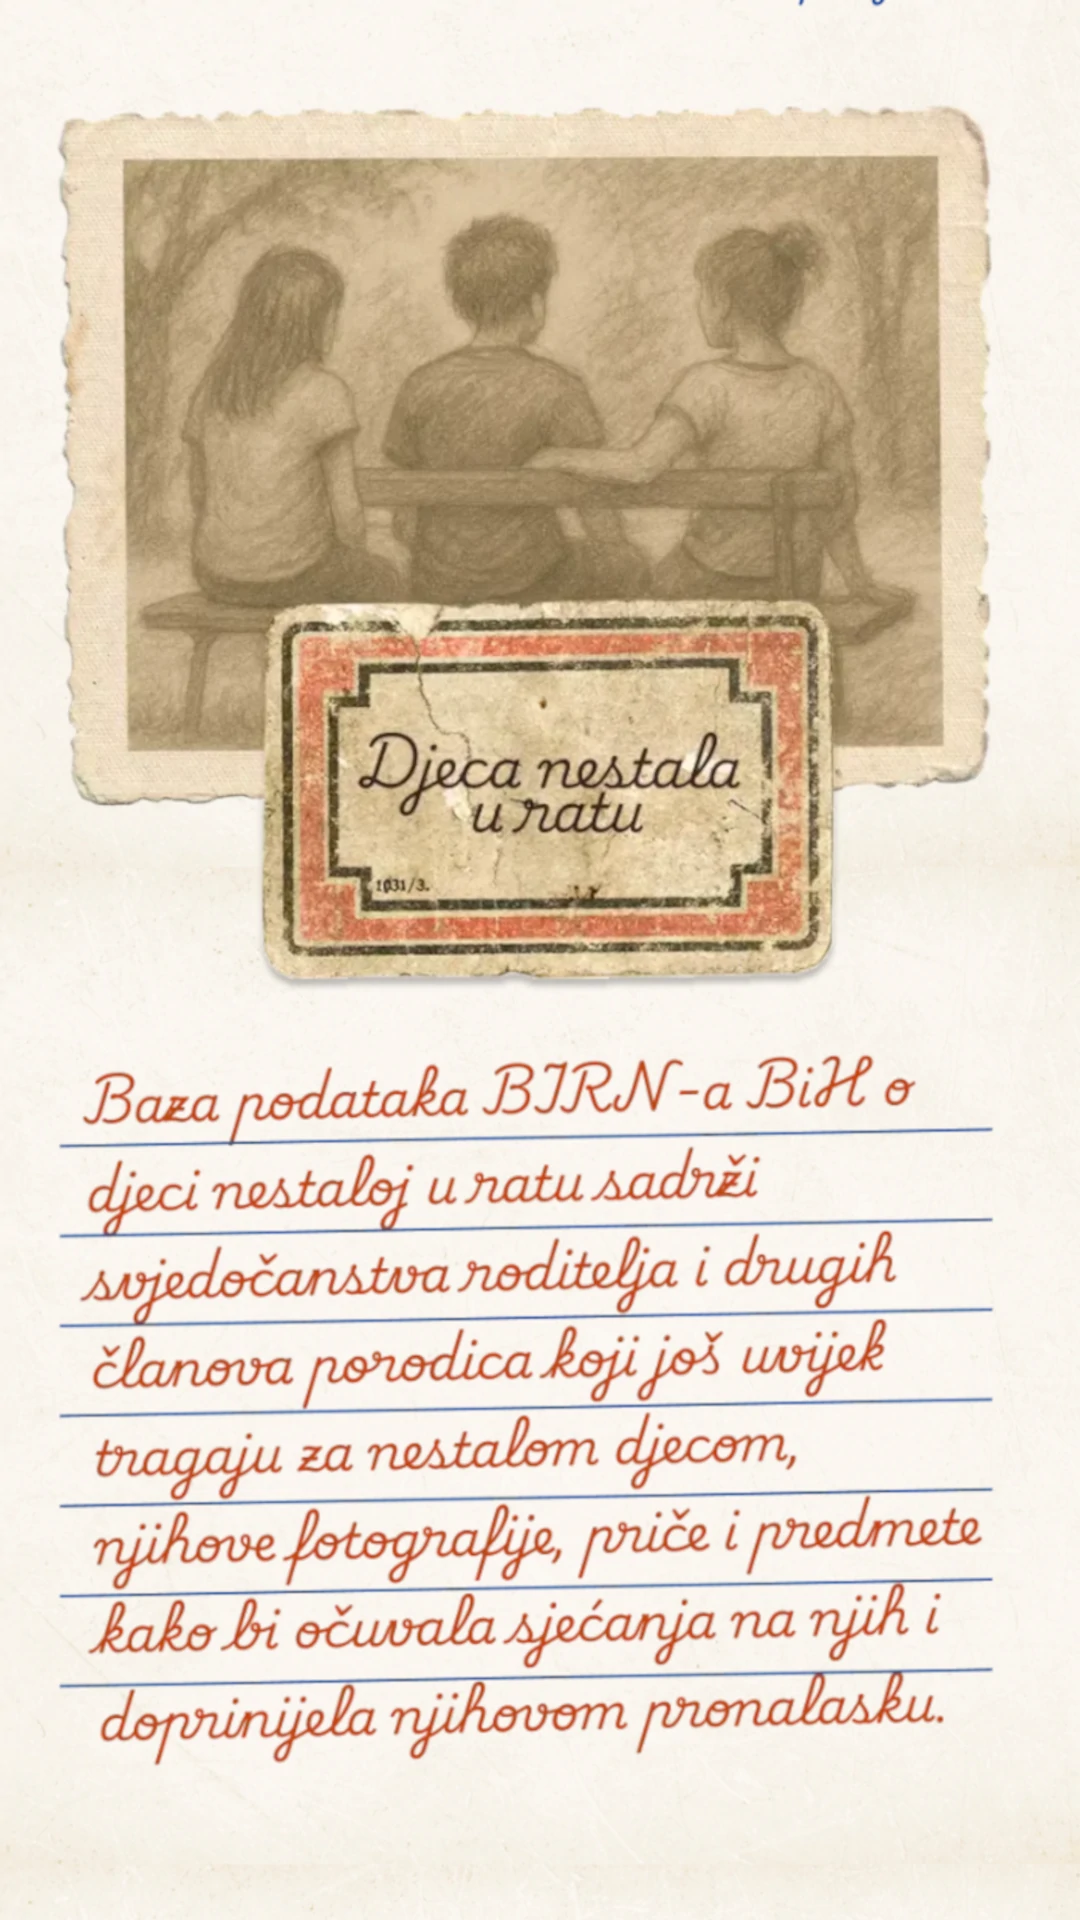 Djeca nestala
u ratu
1031/3.
Baza podataka BIRN-a BiH o
djeci nestaloj u ratu sadrži
svjedočanstva roditelja i drugih
članova porodica koji još uvijek
tragaju za nestalom djecom,
njihove fotografije, priče i predmete
kako bi očuvala sjećanja na njih i
doprinijela njihovom pronalasku.